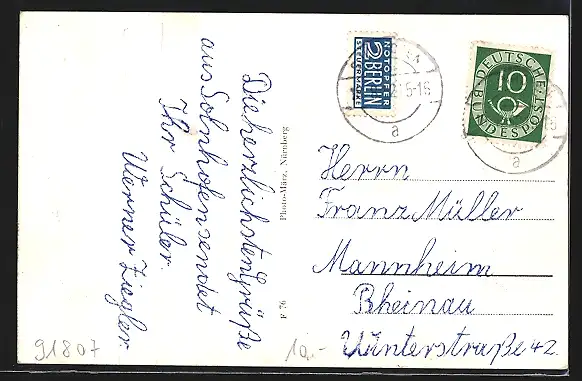 Die herzlichsten Grüße
aus Solnhofen sendet
Ihr Schüler.
Werner Ziegler
Photo-März, Nürnberg
F 76
NOTOPFER
2 BERLIN
STEUERMARKE
5-16
a
DEUTSCHE
10
BUNDESPOST
a
Herrn
Franz Müller
Mannheim
Rheinau
Wünterstraße 42.
91807
10,-